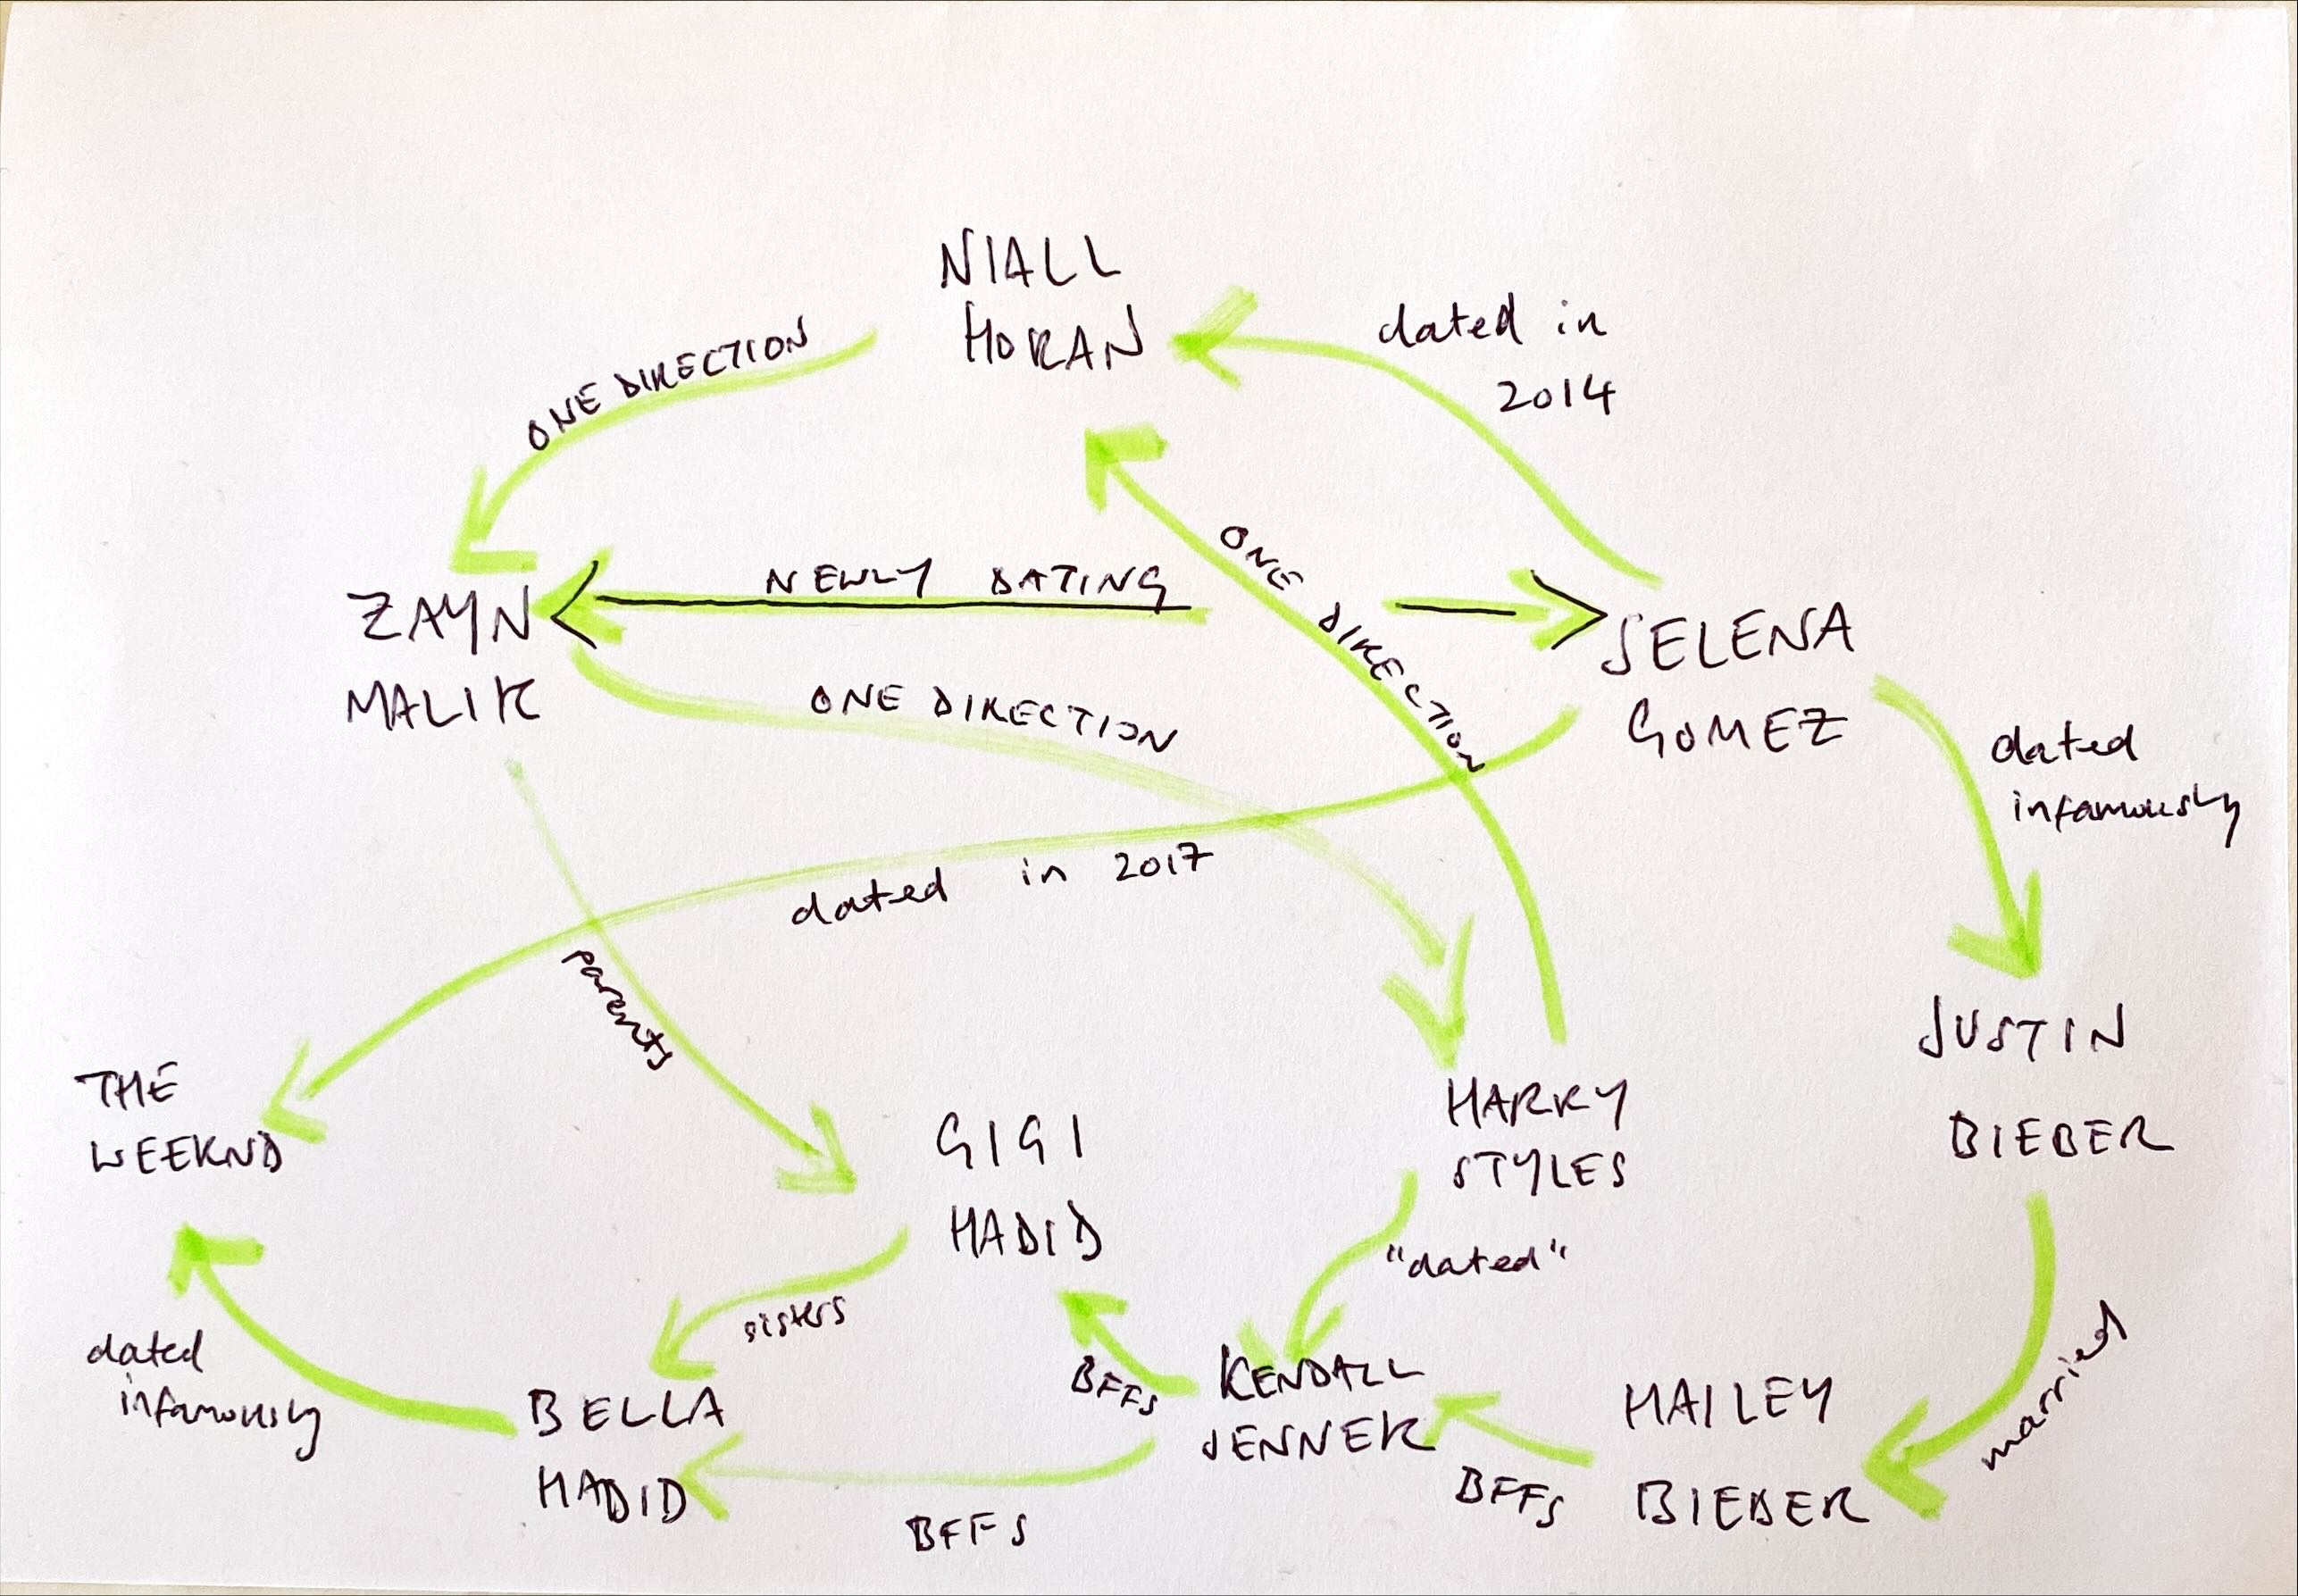 NIALL
HORAN
dated in
2014
ONE DIRECTION
NEWLY DATING
ONE DIRECTION
ZAYN
MALIK
SELENA
GOMEZ
ONE DIRECTION
dated
infamously
dated in 2017
parents
THE
WEEKND
GIGI
HADID
HARRY
STYLES
JUSTIN
BIEBER
"dated"
sisters
married
dated
infamously
BFFS
KENDALL
JENNER
BELLA
HADID
HAILEY
BIEBER
BFFS
BFFS